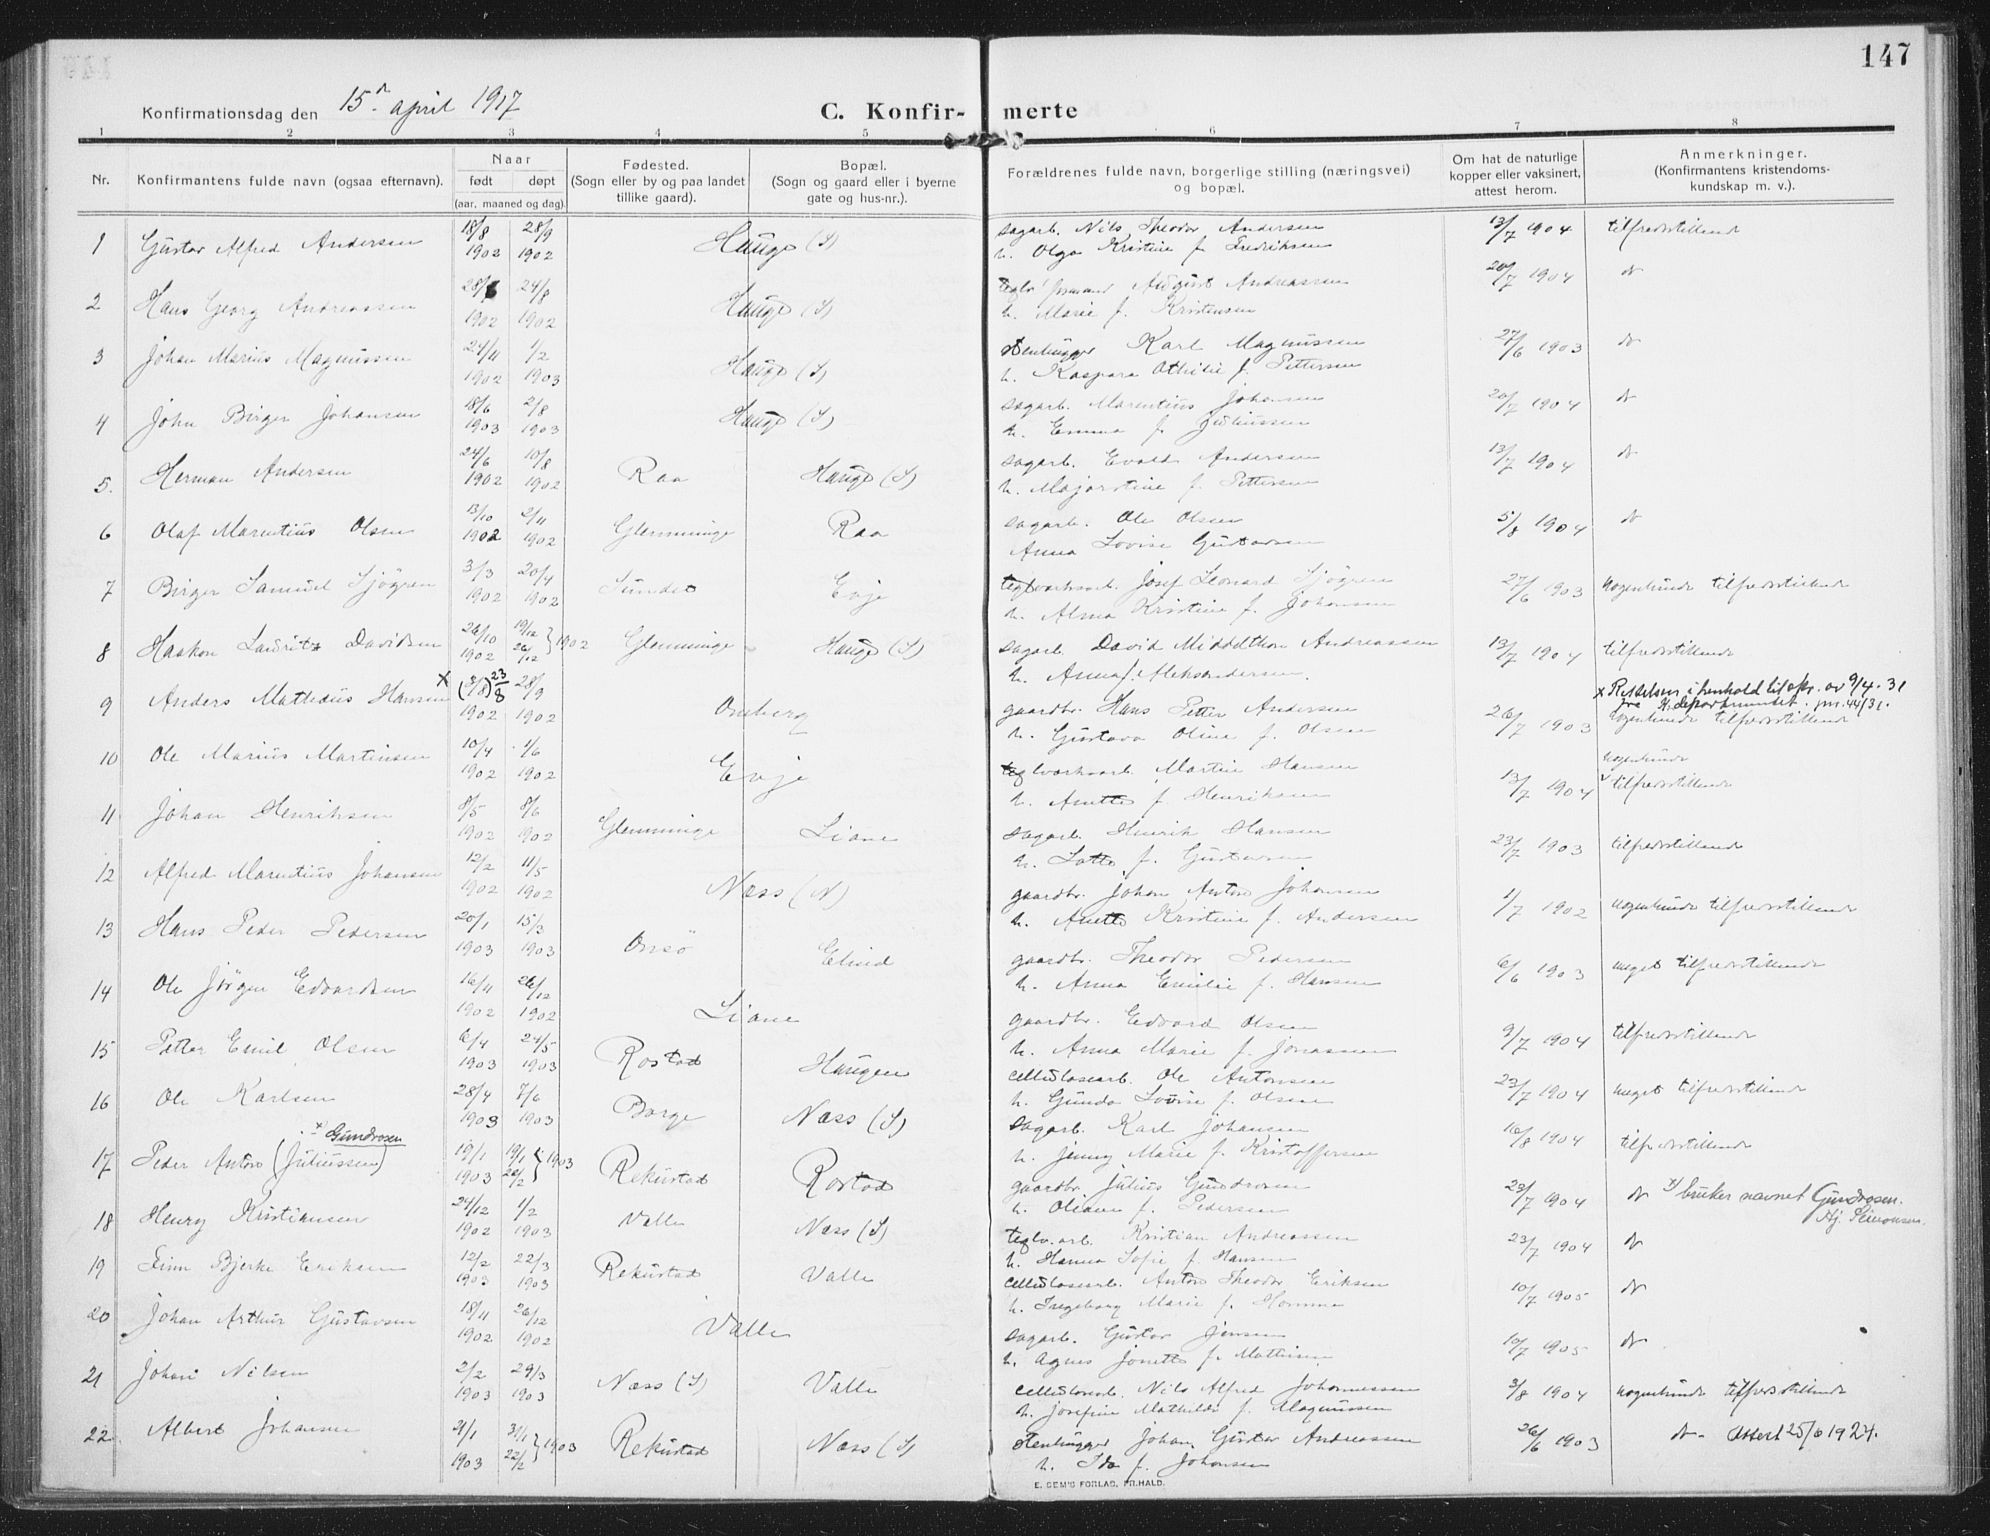 147
Konfirmationsdag den 15. april 1917
C. Konfirmerte
1 2 3 4 5 6 7 8
Nr. Konfirmantens fulde navn (ogsaa efternavn). Naar født døpt (aar, maaned og dag). Fødested. (Sogn eller by og paa landet tillike gaard). Bopæl. (Sogn og gaard eller i byerne gate og hus-nr.). Forældrenes fulde navn, borgerlige stilling (næringsvei) og bopæl. Om hat de naturlige kopper eller vaksinert, attest herom. Anmerkninger. (Konfirmantens kristendomskundskap m. v.).
1 Gustav Alfred Andersen 18/8 1902 28/9 1902 Hauge (S) sagarb. Nils Theodor Andersen 13/7 1904 tilfredsstillende
h. Olga Kristine f. Fredriksen
2 Hans Georg Andreassen 28/6 1902 24/8 1902 Hauge (S) teglv. formand August Andreassen 20/7 1904 do
h. Marie f. Kristensen
3 Johan Marius Magnussen 24/11 1902 1/2 1903 Hauge (S) stenhugger Karl Magnussen 27/6 1903 do
h. Kaspara Othilie f. Pettersen
4 John Birger Johansen 18/6 1903 2/8 1903 Hauge (S) sagarb. Marentius Johansen 20/7 1904 do
h. Emma f. Juliussen
5. Herman Andersen 24/6 1902 10/8 1902 Raa Hauge (S) sagarb. Evald Andersen 13/7 1904 do
h. Majastine f. Pettersen
6 Olaf Marentius Olsen 13/10 1902 2/11 1902 Glemminge Raa sagarb. Ole Olsen 5/8 1904 do
Anna Lovise Gustavsen
7 Birger Samuel Sjögren 3/3 1902 20/4 1902 Sundet Evje teglverksarb. Josef Leonard Sjögren 27/6 1903 nogenlunde tilfredsstillende
h. Alma Kristine f. Johansen
8 Haakon Lauritz Davidsen 26/10 1902 19/12 26/12 } 1902 Glemminge Hauge (S) sagarb. David Middelthon Andreassen 13/7 1904 tilfredsstillende
h. Anna f. Aleksandersen.
9 Anders Mathæus Hansen x (3/8) 23/8 1902 28/9 1902 Øreberg gaardbr. Hans Petter Andersen 26/7 1903 nogenlunde tilfredsstillende
x Rettelsen i henhold til skr. av 9/4. 31 fra K. departementet. jnr. 44/31.
h. Gustava Oline f. Olsen
10 Ole Marius Martinsen 10/4 1902 1/6 1902 Evje teglverksarb. Martin Hansen 13/7 1904 nogenlunde tilfredsstillende
h. Anette f. Henriksen
11 Johan Henriksen 8/5 1902 8/6 1902 Glemminge Liane sagarb. Henrik Hansen 23/7 1903 tilfredsstillende
h. Lotte f. Gustavsen
12 Alfred Marentius Johansen 12/2 1902 11/5 1902 Næss (N) gaardbr. Johan Anton Johansen 1/7 1902 nogenlunde tilfredsstillende
h. Anette Kristine f. Andersen
13 Hans Peder Pedersen 20/1 1903 15/3 1903 Onsö Elind gaardbr. Theodor Pedersen 6/6 1903 meget tilfredsstillende
h. Anna Emilie f. Hansen
14 Ole Jörgen Edvardsen 16/11 1902 26/12 1902 Liane gaardbr. Edvard Olsen 9/7 1904 tilfredsstillende
h. Anna Marie f. Jonassen
15 Petter Emil Olsen 6/4 1903 24/5 1903 Rostad Haugen cellulosearb. Ole Antonsen 23/7 1904 meget tilfredsstillende
h. Gunda Lovise f. Olsen
16 Ole Karlsen 28/4 1903 7/6 1903 Borge Næss (S) sagarb. Karl Johansen 16/8 1904 tilfredsstillende
h. Jenny Marie f. Kristoffersen
17 Peder Anton (Juliussen) x) Gundrosen 19/1 1903 19/1 20/2 } 1903 Rekustad Rostad gaardbr. Julius Gundrosen 23/7 1904 do x) bruker navnet Gundrosen. Hj. Simonsen.
h. Oliane f. Pedersen
18 Henry Kristiansen 24/12 1902 1/2 1903 Valle Næss (S) teglv.arb. Kristian Andreassen 23/7 1904 do
h. Hanna Sofie f. Hansen
19 Finn Bjerke Eriksen 12/2 1903 22/3 1903 Rekustad Valle cellulosearb. Anton Theodor Eriksen 10/7 1905 do
h. Ingeborg Marie f. Homme
20 Johan Arthur Gustavsen 18/11 1902 26/12 1902 Valle sagarb. Gustav Jensen 10/7 1905 do
h. Agnes Jonette f. Mathisen
21 Johan Nilsen 2/2 1903 29/3 1903 Næss (S) Valle cellulosearb. Nils Alfred Johannessen 3/8 1904 nogenlunde tilfredsstillende
h. Josefine Mathilde f. Magnussen
22. Albert Johansen 21/1 1903 31/1 22/2 } 1903 Rekustad Næss (S) stenhugger Johan Gustav Andreassen 26/6 1903 do - Attest 25/6 1924.
h. Ida f. Johansen
E. SEM'S FORLAG, FR.HALD.